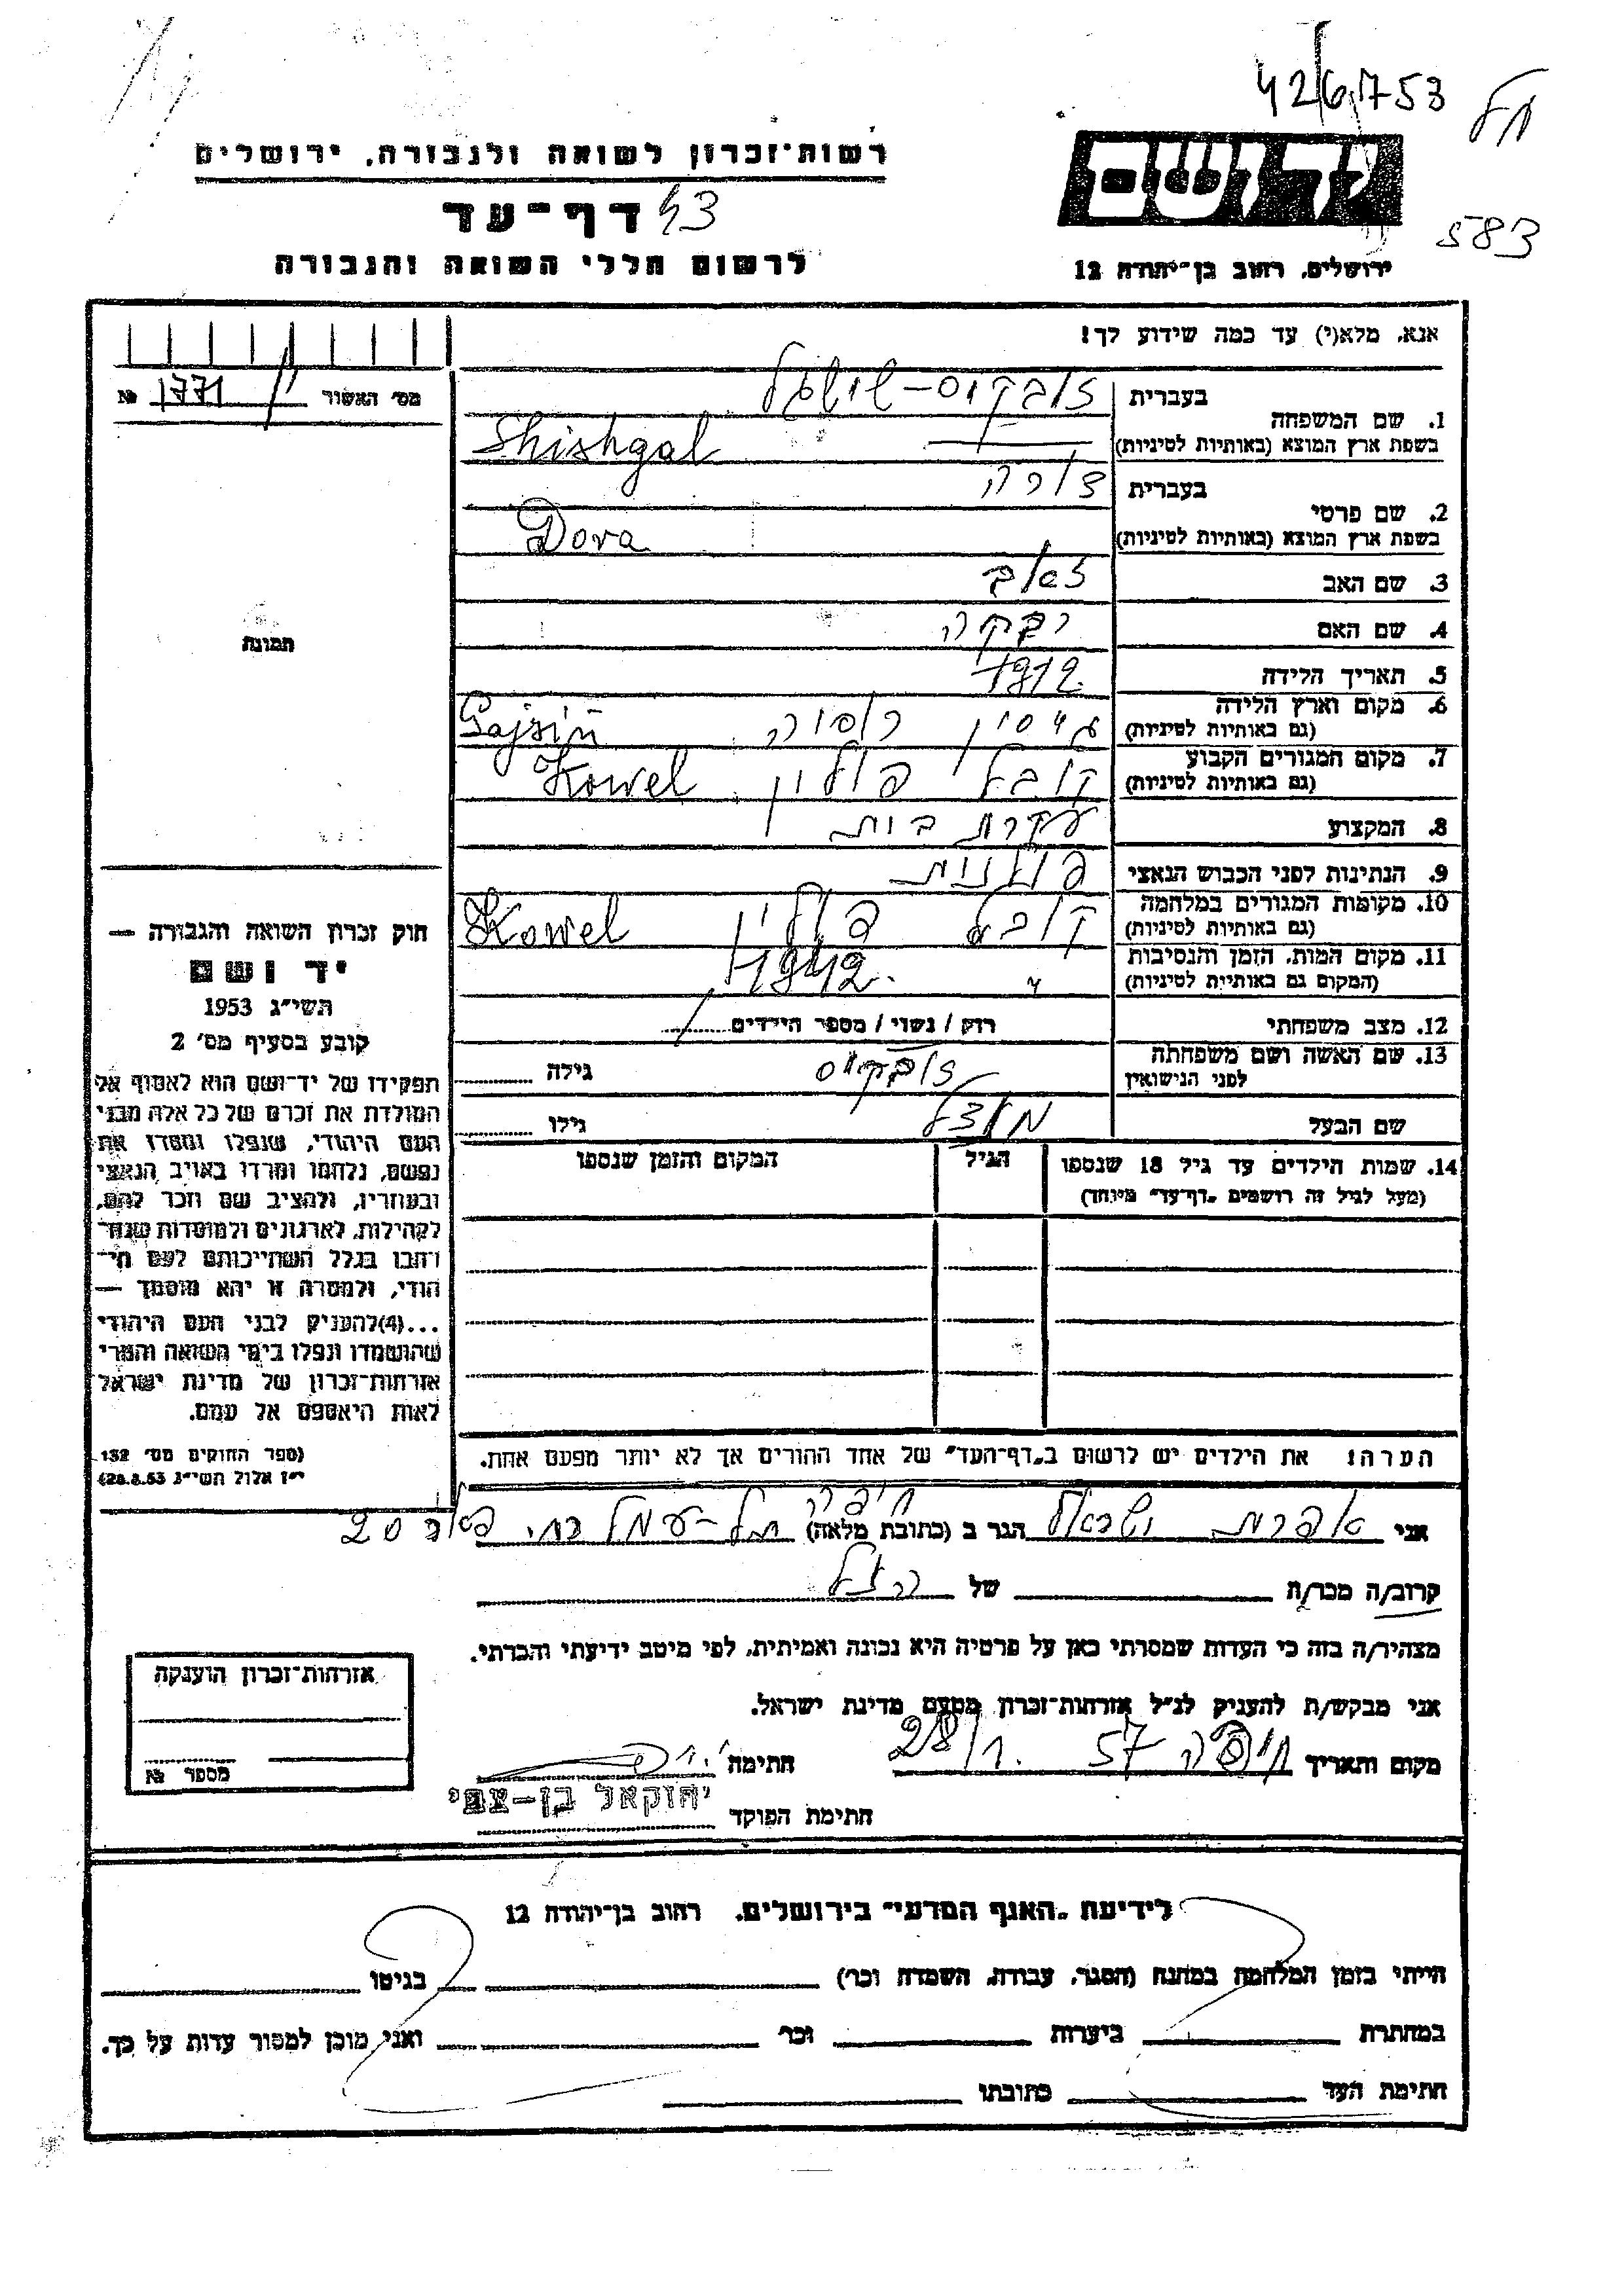 42/6753
חל
583
רשות־זכרון לשואה ולגבורה, ירושלים
דף־עד 43
לרשום חללי השואה והגבורה
יד ושם
ירושלים, רחוב בן־יהודה 12
אנא, מלא(י) עד כמה שידוע לך!
מס׳ האשור 1771 №
תמונה
1. שם המשפחה
בעברית שישגל
בשפת ארץ המוצא (באותיות לטיניות) Shishgal
2. שם פרטי
בעברית דורה
בשפת ארץ המוצא (באותיות לטיניות) Dora
3. שם האב זאב
4. שם האם רבקה
5. תאריך הלידה 1912
6. מקום וארץ הלידה
(גם באותיות לטיניות) גייסין רוסיה Gajsin
7. מקום המגורים הקבוע
(גם באותיות לטיניות) קובל פולין Kowel
8. המקצוע עקרת בית
9. הנתינות לפני הכבוש הנאצי פולנית
10. מקומות המגורים במלחמה
(גם באותיות לטיניות) קובל פולין Kowel
11. מקום המות, הזמן והנסיבות
(המקום גם באותיות לטיניות) " 1942
12. מצב משפחתי רווק / נשוי / מספר הילדים
13. שם האשה ושם משפחתה
לפני הנישואין גילה
שם הבעל גילו
14. שמות הילדים עד גיל 18 שנספו
(מעל לגיל זה רושמים „דף־עד״ מיוחד)
הגיל
המקום והזמן שנספו
חוק זכרון השואה והגבורה —
יד ושם
תשי״ג 1953
קובע בסעיף מס׳ 2
תפקידו של יד־ושם הוא לאסוף אל
המולדת את זכרם של כל אלה מבני
העם היהודי, שנפלו ומסרו את
נפשם, נלחמו ומרדו באויב הנאצי
ובעוזריו, ולהציב שם וזכר להם,
לקהילות, לארגונים ולמוסדות שנח־
רבו בגלל השתייכותם לעם הי־
הודי, ולמטרה זו יהא מוסמך —
...(4) להעניק לבני העם היהודי
שהושמדו ונפלו בימי השואה והמרי
אזרחות־זכרון של מדינת ישראל
לאות היאספם אל עמם.
(ספר החוקים מס׳ 132
י״ז אלול תשי״ג 28.8.53)
הערה: את הילדים יש לרשום ב„דף־העד״ של אחד ההורים אך לא יותר מפעם אחת.
אני אפרת ישראל הגר ב (כתובת מלאה) חיפה תל־עמל 20
קרוב/ה מכר/ה של הנ״ל
מצהיר/ה בזה כי העדות שמסרתי כאן על פרטיה היא נכונה ואמיתית, לפי מיטב ידיעתי והכרתי.
אני מבקש/ת להעניק לנ״ל אזרחות־זכרון מטעם מדינת ישראל.
מקום ותאריך חיפה 28/1. 57 חתימה
חתימת הפוקד יחזקאל בן-צבי
אזרחות־זכרון הוענקה
מספר №
לידיעת „האגף המדעי״ בירושלים, רחוב בן־יהודה 12
הייתי בזמן המלחמה במחנה (הסגר, עבודה, השמדה וכר׳) בגיטו
במחתרת ביערות וכר׳ ואני מוכן למסור עדות על כך.
חתימת העד כתובתו